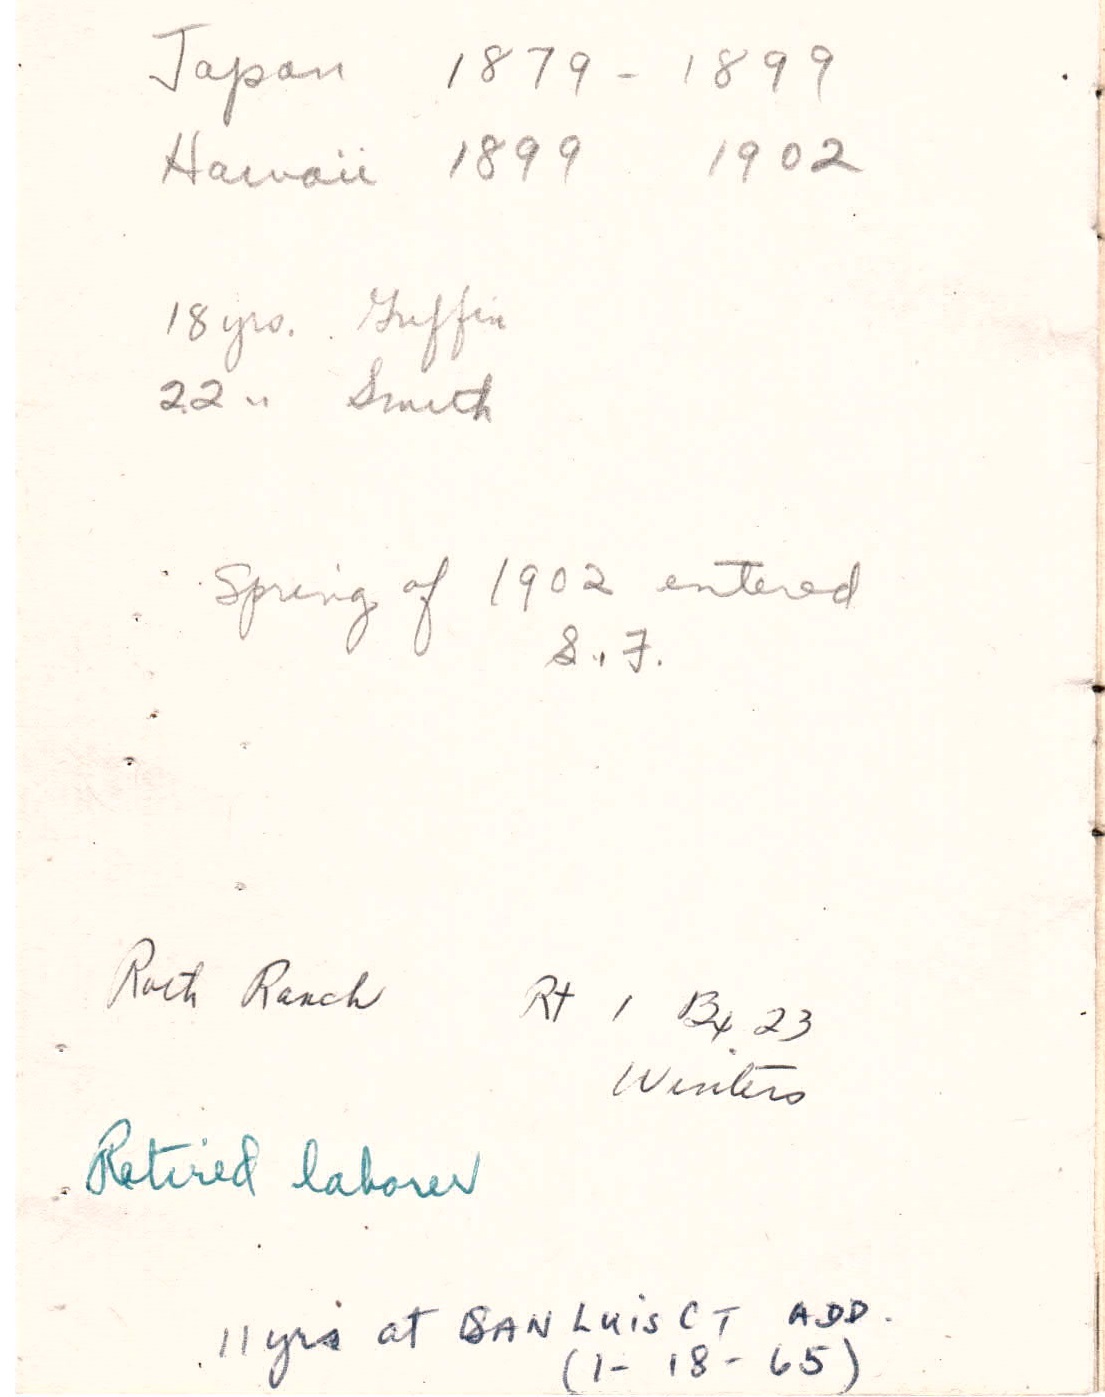 Japan 1879 - 1899
Hawaii 1899 1902
18 yrs. Griffin
22 " Smith
Spring of 1902 entered
S. F.
Roth Ranch Rt 1 Bx 23
Winters
Retired laborer
11 yrs at SAN LUiS CT ADD.
(1- 18- 65)